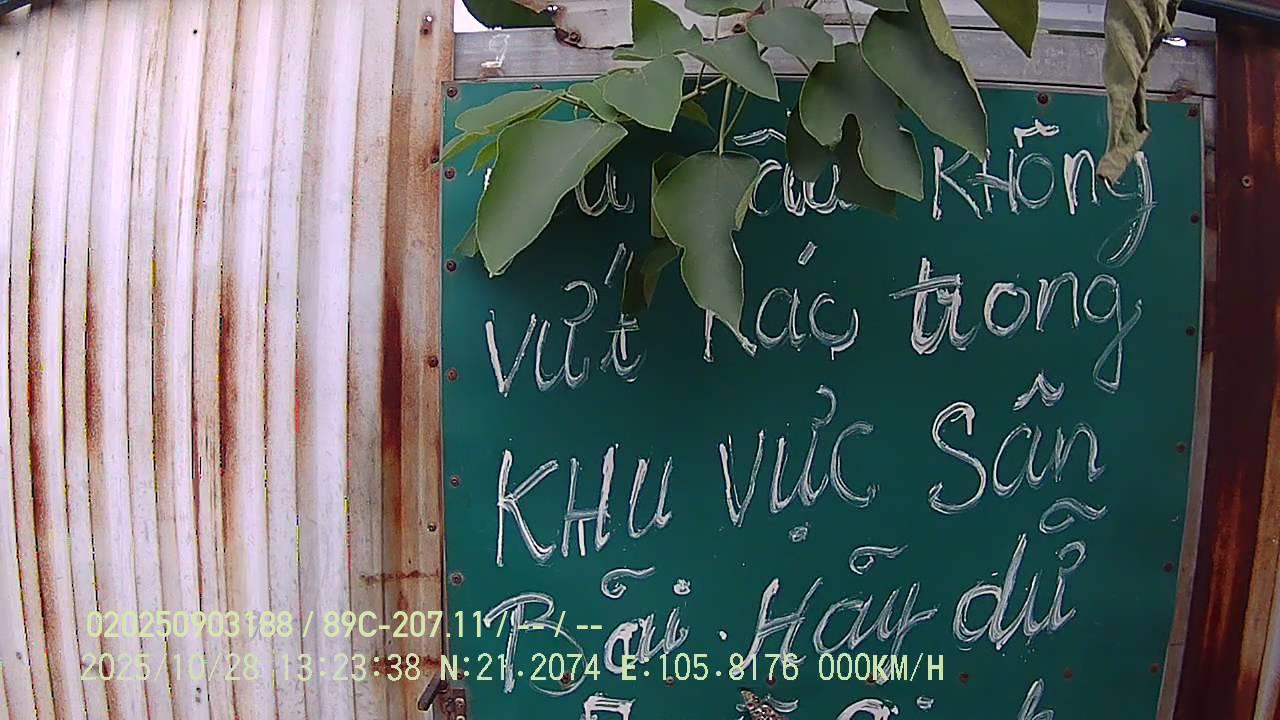 Không
vứt Rác trong
Khu vực Sân
Bãi. Hãy dữ
020250903188 / 89C-207.11 / -- / --
2025/10/28 13:23:38 N:21.2074 E:105.8176 000KM/H